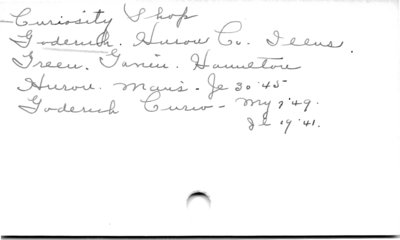 Curiosity Shop
Goderich. Huron Co. Items.
Green. Gavin. Hamilton
Huron. Man's - Je 30 '45
Goderich Curio - My 7 '49.
Je 19 '41.